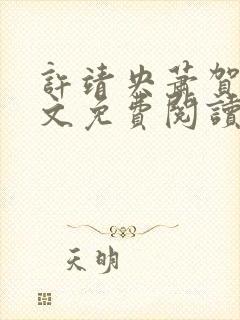 許靖央蕭賀
文免費閱讀
天明